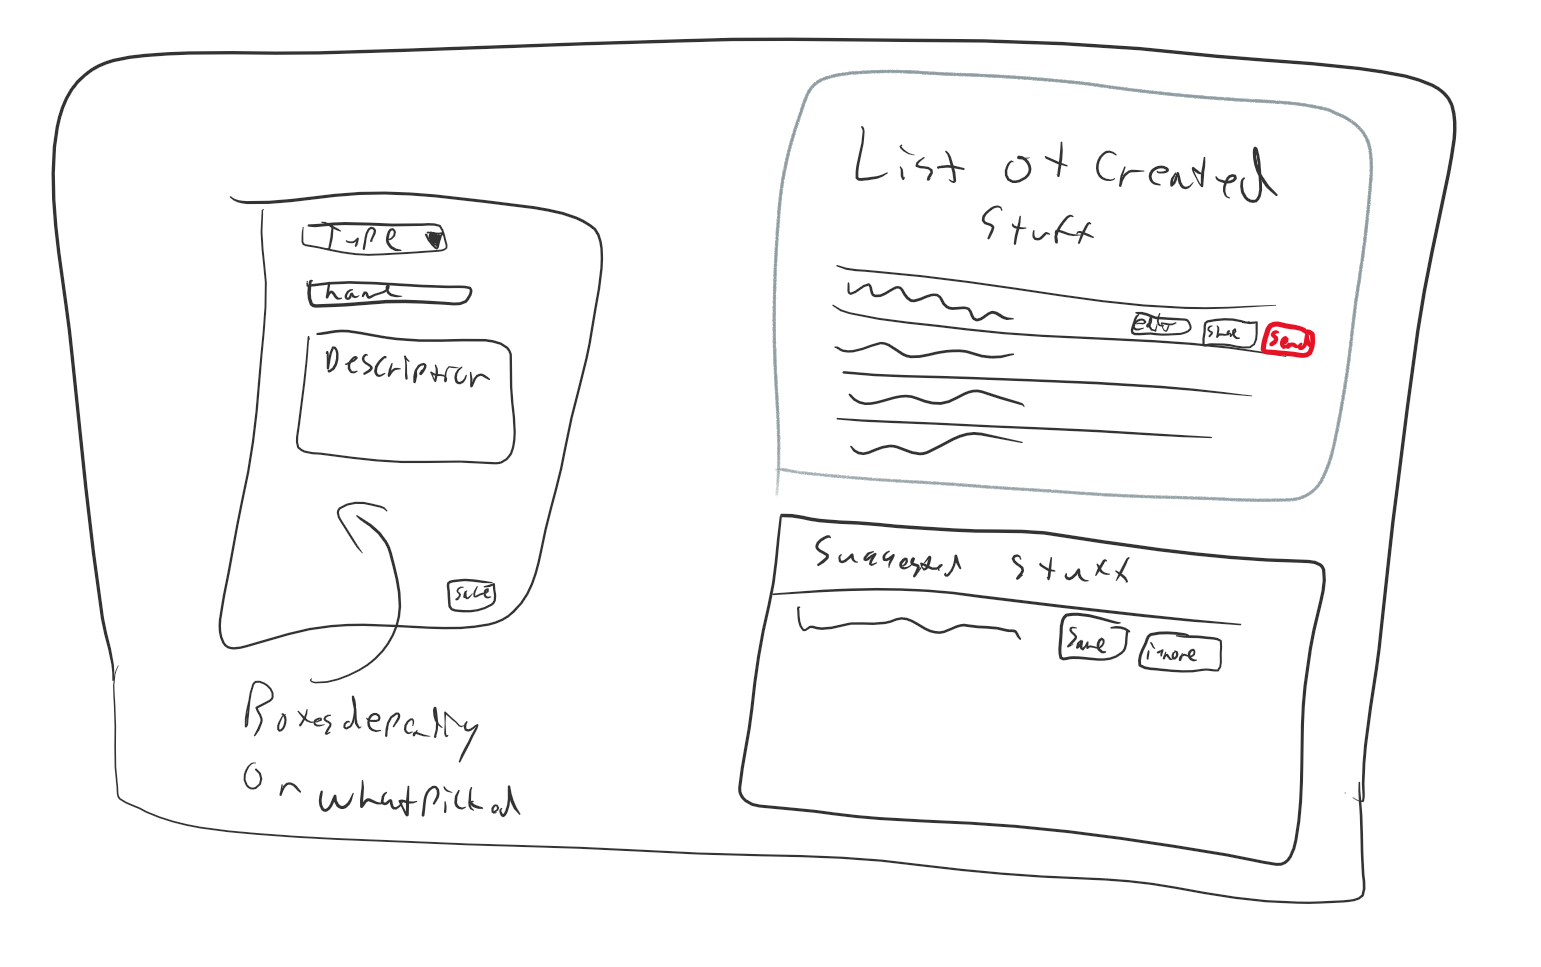 Type
name
Description
Save
Boxes depending
on what picked
List of Created
Stuff
edit
Share
Send
Suggested Stuff
Save
ignore